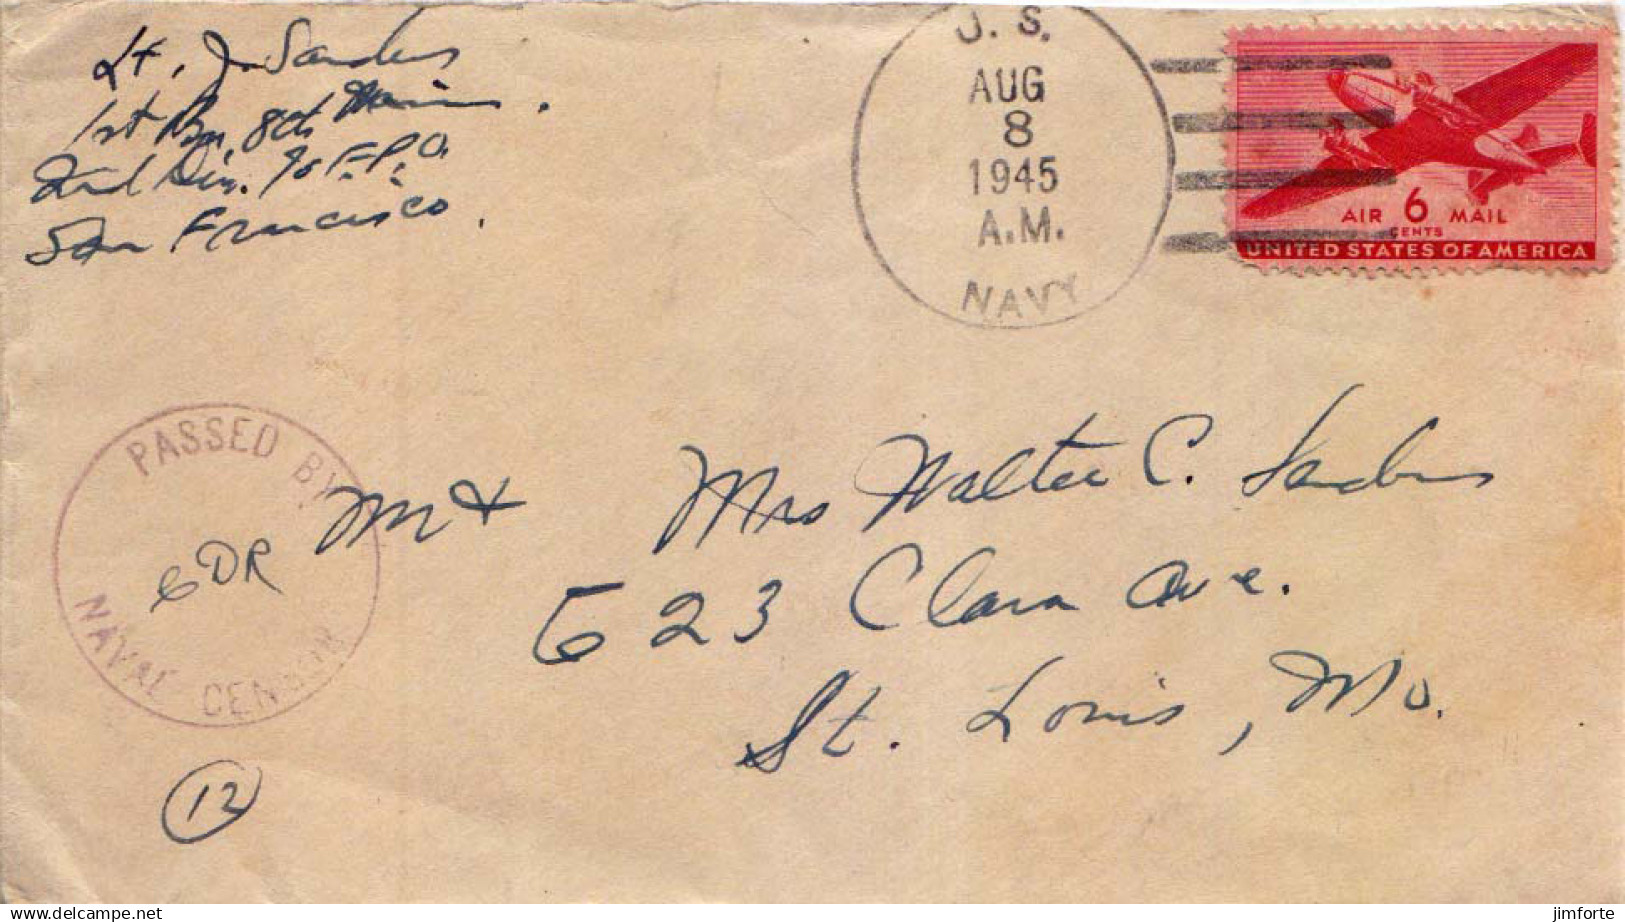 Lt. J. Sanders
1st Bn. 8th Marines.
2nd Div. % F.P.O.
San Francisco.
U. S.
AUG
8
1945
A.M.
NAVY
AIR 6 MAIL
CENTS
UNITED STATES OF AMERICA
PASSED BY
NAVAL CENSOR
Mr + Mrs Walter C. Sanders
623 Clara Ave.
St. Louis, Mo.
12
delcampe.net
jimforte